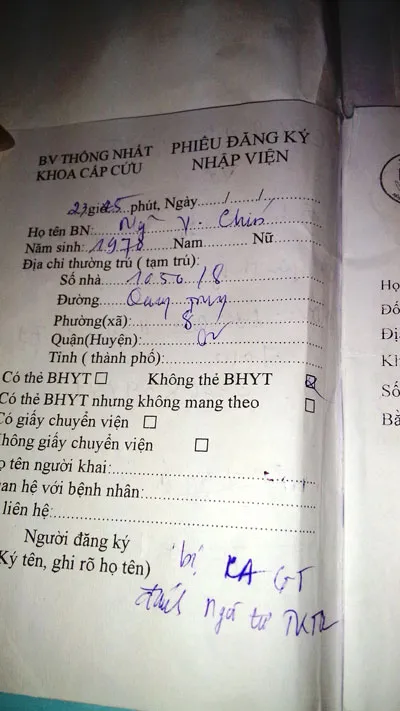 BV THỐNG NHẤT
KHOA CẤP CỨU
PHIẾU ĐĂNG KÝ
NHẬP VIỆN
giờ 25 phút, Ngày....../....../......
Họ tên BN: V. Chín
Năm sinh: 1978 Nam Nữ
Địa chỉ thường trú ( tạm trú):
Số nhà 1050/8
Đường Quang Trung
Phường(xã): 8
Quận(Huyện): GV
Tỉnh ( thành phố):
Có thẻ BHYT ☐ Không thẻ BHYT ☒
Có thẻ BHYT nhưng không mang theo ☐
Có giấy chuyển viện ☐
hông giấy chuyển viện ☐
ọ tên người khai:
an hệ với bệnh nhân:
liên hệ:
Người đăng ký
Ký tên, ghi rõ họ tên)
bị GT
ngã tư
Họ
Đố
Đị
Kh
Số
Bằ